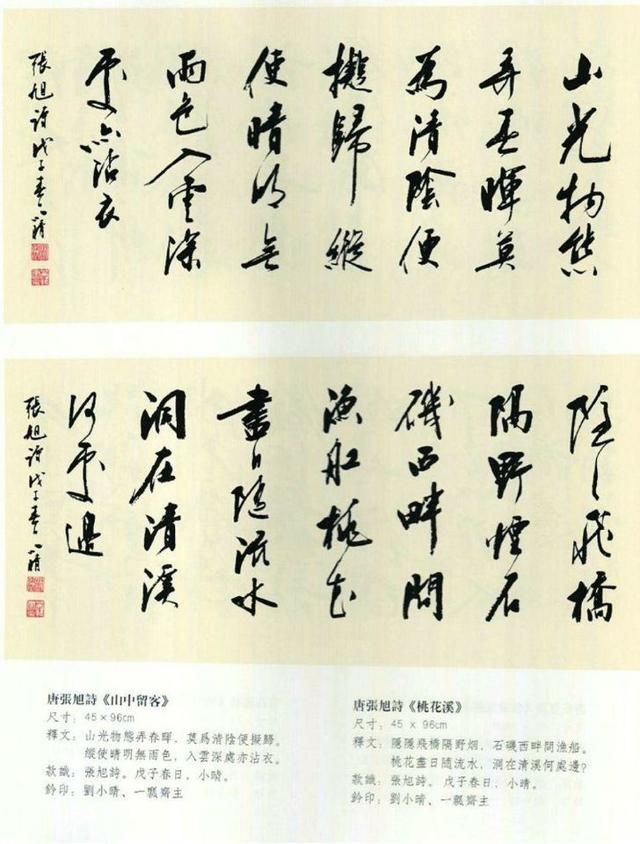 山光物態
弄春暉莫
為清陰便
擬歸縱
使晴明無
雨色入雲深
處亦沾衣
張旭詩戊子春小晴
隱〻飛橋
隔野煙石
磯西畔問
漁船桃花
盡日隨流水
洞在清溪
何處邊
張旭詩戊子春小晴
唐張旭詩《山中留客》
尺寸：45×96cm
釋文：山光物態弄春暉，莫為清陰便擬歸。
縱使晴明無雨色，入雲深處亦沾衣。
款識：張旭詩。戊子春日，小晴。
鈐印：劉小晴、一瓢齋主
唐張旭詩《桃花溪》
尺寸：45 x 96cm
釋文：隱隱飛橋隔野烟，石磯西畔問漁船。
桃花盡日隨流水，洞在清溪何處邊？
款識：張旭詩。戊子春日，小晴。
鈐印：劉小晴、一瓢齋主